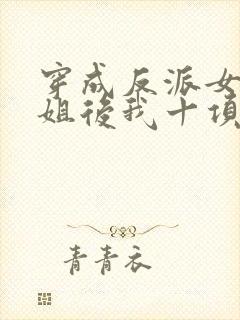 穿成反派女
姐後我十項
青青衣